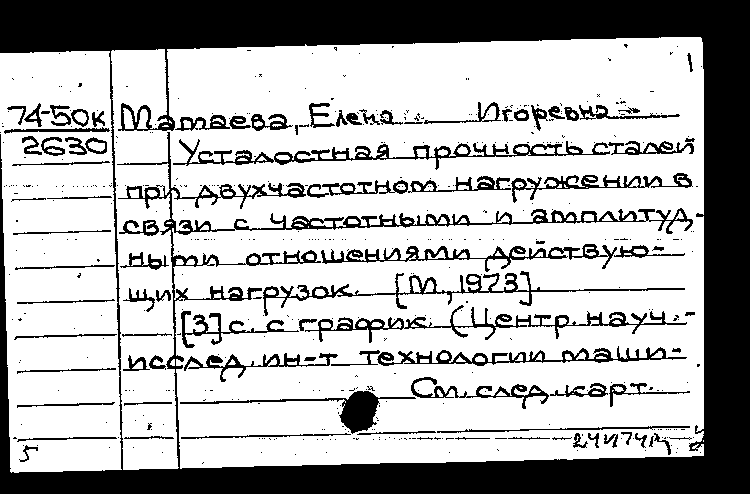 1
74-50к Матаева, Елена Игоревна
2630 Усталостная прочность сталей
при двухчастотном нагружении в
связи с частотными и амплитуд-
ными отношениями действую-
щих нагрузок. [М., 1973].
[3] с. с график. (Центр. науч.-
исслед. ин-т технологии маши-
См. след. карт.
5